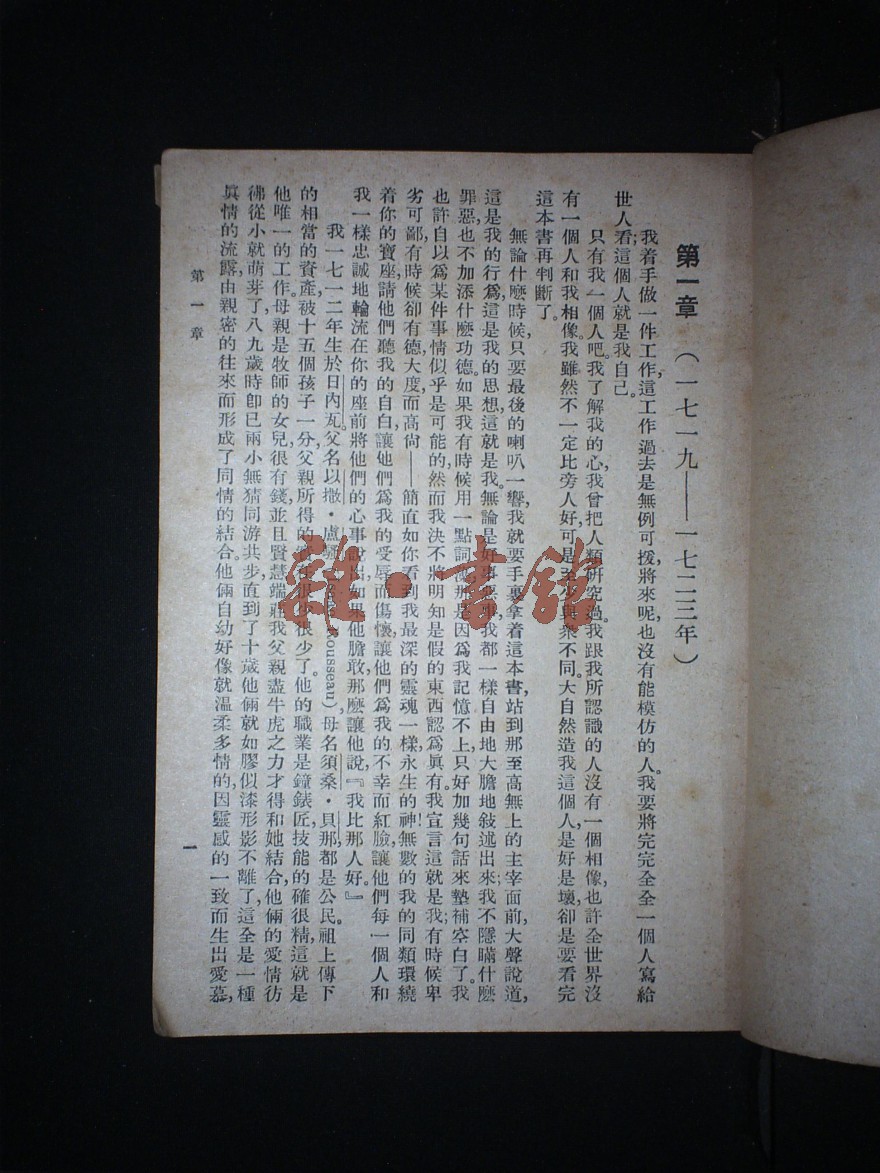 第一章 (一七一九——一七二三年)
我着手做一件工作,這工作過去是無例可援,將來呢,也沒有能模仿的人。我要將完完全全一個人寫給
世人看;這個人就是我自己。
只有我一個人吧。我了解我的心,我曾把人類研究過。我跟我所認識的人沒有一個相像,也許全世界沒
有一個人和我相像。我雖然不一定比旁人好,可是至少與衆不同。大自然造我這個人,是好是壞,卻是要看完
這本書再判斷了。
無論什麽時候,只要最後的喇叭一響,我就要手裏拿着這本書,站到那至高無上的主宰面前,大聲說道,
這是我的行爲,這是我的思想,這就是我。無論是好事惡事,我都一樣自由地大膽地敍述出來;我不隱瞞什麽
罪惡,也不加添什麽功德。如果我有時候用一點詞藻,那是因爲我記憶不上,只好加幾句話來墊補空白了。我
也許自以爲某件事情似乎是可能的,然而我決不將明知是假的東西認爲眞有。我宣言這就是我;有時候卑
劣可鄙,有時候卻有德大度,而高尙——簡直如你看到我最深的靈魂一樣,永生的神!無數的我的同類環繞
着你的寶座,請他們聽我的自白,讓他們爲我的受辱而傷懷,讓他們爲我的不幸而紅臉,讓他們每一個人和
我一樣忠誠地輪流在你的座前將他們的心事說出,如果他膽敢那麽讓他說,『我比那人好。』
我一七一二年生於日內瓦。父名以撒·盧騷( Rousseau),母名須桑·貝那,都是公民。祖上傳下
的相當的資產,被十五個孩子一分,父親所得的 很少很少了。他的職業是鐘錶匠,技能的確很精,這就是
他唯一的工作。母親是牧師的女兒,很有錢,並且賢慧端莊,我父親盡牛虎之力才得和她結合,他倆的愛情彷
彿從小就萌芽了,八九歲時卽已兩小無猜,同游共步,直到了十歲他倆就如膠似漆,形影不離了,這全是一種
眞情的流露,由親密的往來而形成了同情的結合。他倆自幼好像就溫柔多情的,因靈感的一致而生出愛慕,
第一章
一
雜·書館